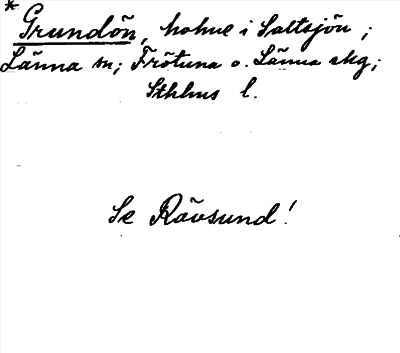 * Grundön, holme i Saltsjön;
Länna sn; Frötuna o. Länna skg;
Sthlms l.
Se Rävsund!